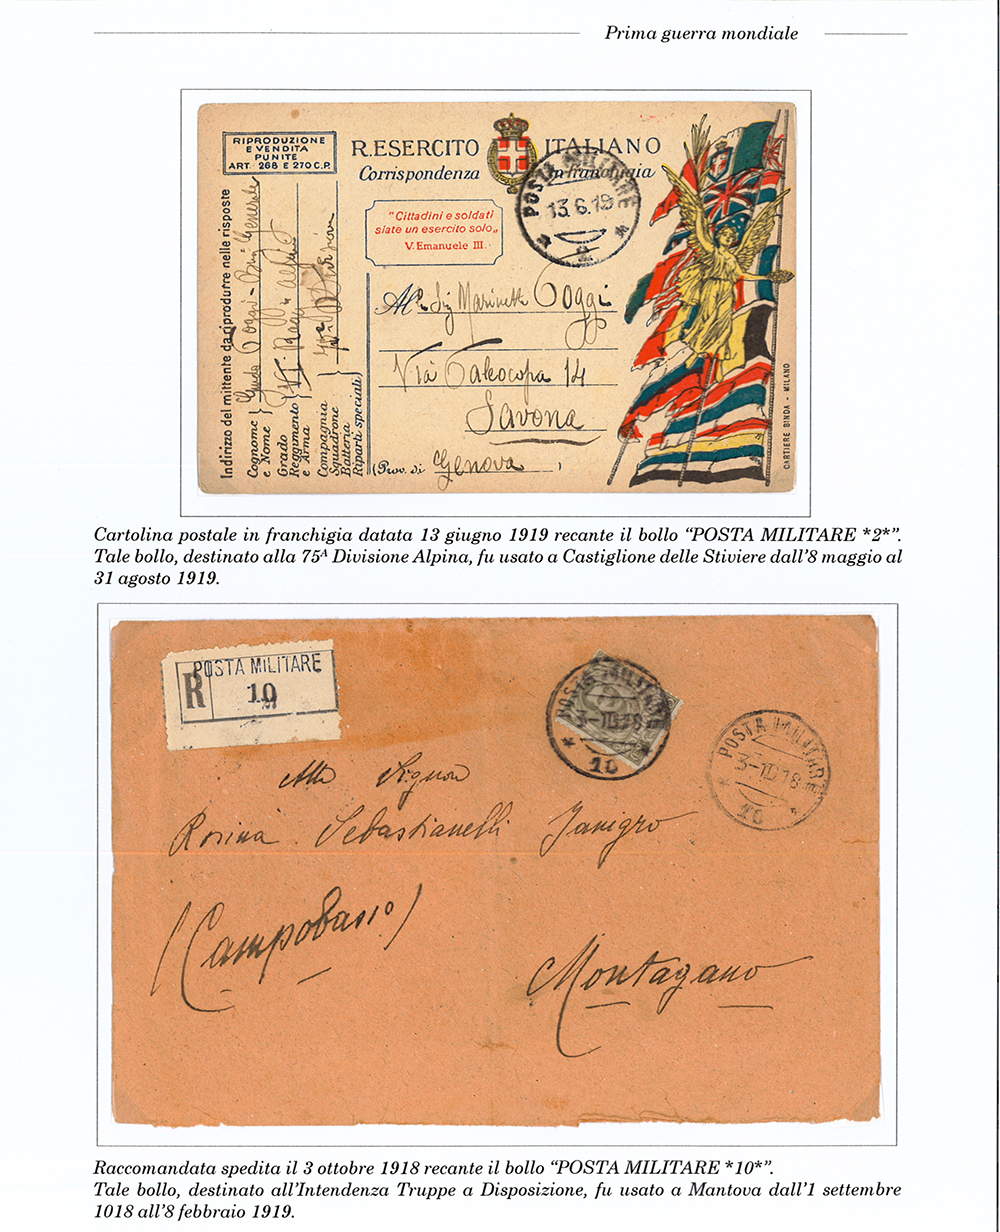 Prima guerra mondiale
RIPRODUZIONE
E VENDITA
PUNITE
ART. 268 E 270 C.P.
R. ESERCITO ITALIANO
Corrispondenza in franchigia
"Cittadini e soldati
siate un esercito solo„
V. Emanuele III.
POSTA MILITARE
13.6.19
* 2 *
Indirizzo del mittente da riprodurre nelle risposte
Cognome
e Nome
Grado
Reggimento
e Arma
Compagnia
Squadrone
Batteria
Riparti speciali
Poggi
Via 14
Savona
(Prov. di Genova)
CARTIERE BINDA - MILANO
Cartolina postale in franchigia datata 13 giugno 1919 recante il bollo “POSTA MILITARE *2*”.
Tale bollo, destinato alla 75ᴬ Divisione Alpina, fu usato a Castiglione delle Stiviere dall’8 maggio al
31 agosto 1919.
R
POSTA MILITARE
10
POSTA MILITARE
3-10.18
* 10 *
POSTA MILITARE
3-10.18
* 10 *
Alla Signora
Rosina Sebastianelli Janigro
(Campobasso)
Montagano
Raccomandata spedita il 3 ottobre 1918 recante il bollo “POSTA MILITARE *10*”.
Tale bollo, destinato all’Intendenza Truppe a Disposizione, fu usato a Mantova dall’1 settembre
1018 all’8 febbraio 1919.